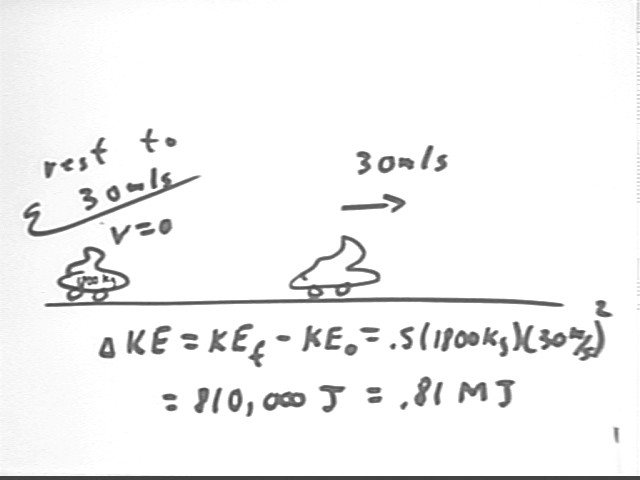 rest to
30m/s
V=0
30m/s
1800 kg
Δ KE = KE_f - KE_0 = .5(1800kg)(30m/s)²
= 810,000 J = .81 MJ